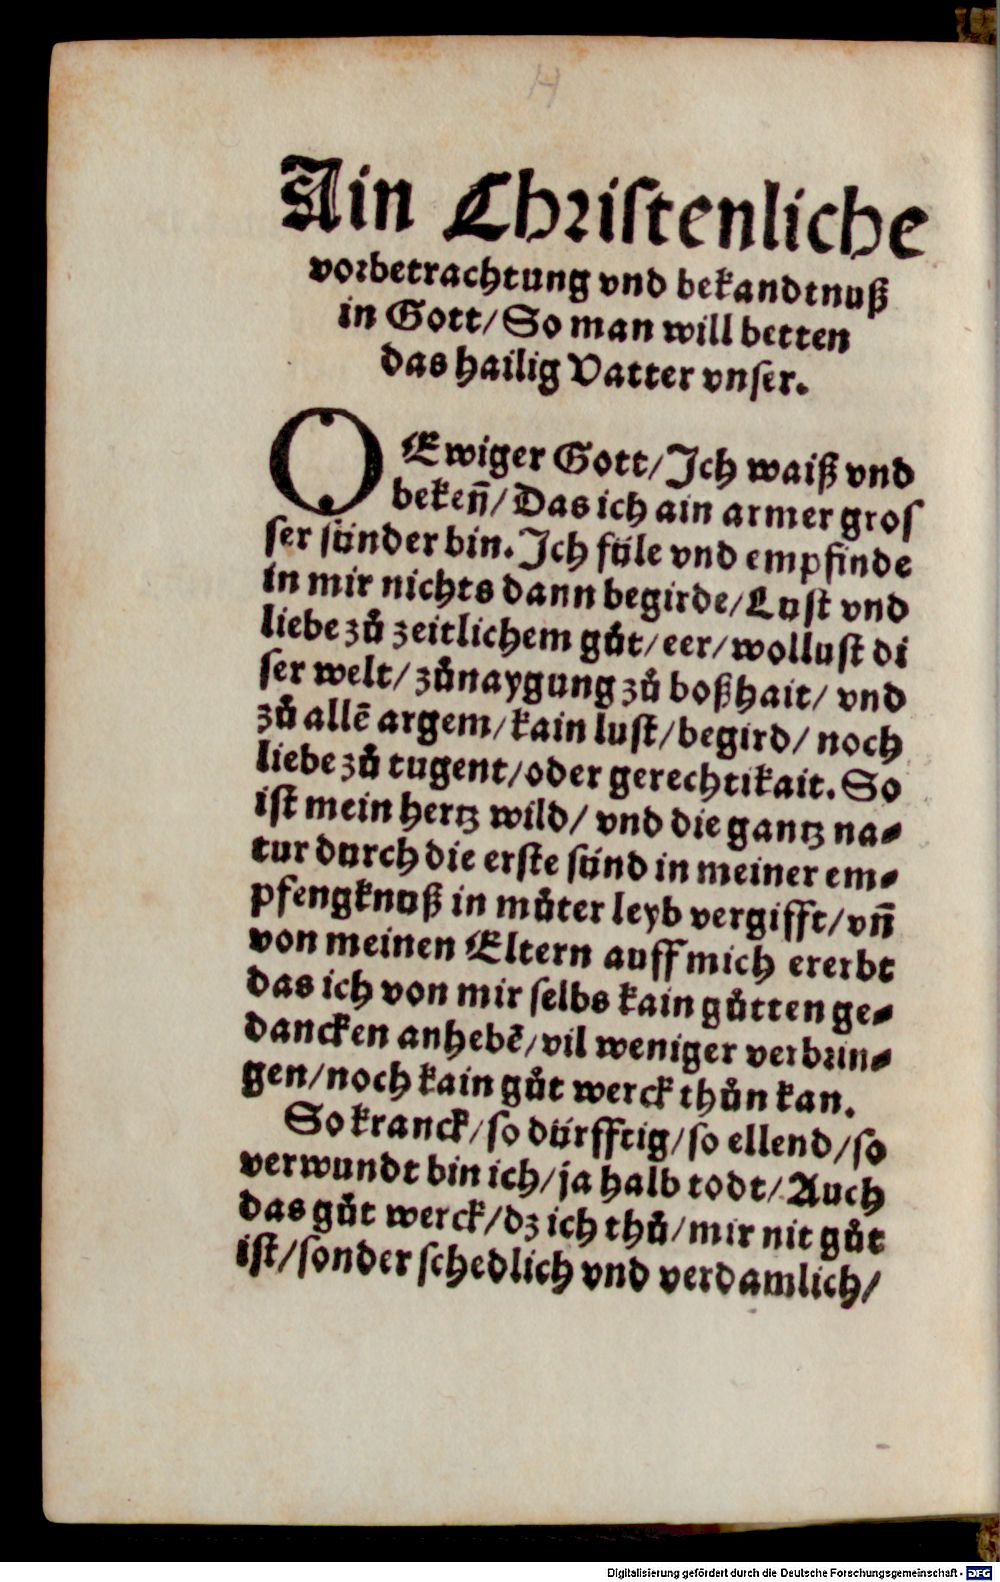 H
Ain Christenliche
vorbetrachtung vnd bekandtnuß
in Gott/ So man will betten
das hailig Vatter vnser.
O Ewiger Gott/ Jch waiß vnd
bekeñ/ Das ich ain armer gros
ser sünder bin. Jch füle vnd empfinde
in mir nichts dann begirde/ Lust vnd
liebe zů zeitlichem gůt/ eer/ wollust di
ser welt/ zůnaygung zů boßhait/ vnd
zů allẽ argem/ kain lust/ begird/ noch
liebe zů tugent/ oder gerechtikait. So
ist mein hertz wild/ vnd die gantz na-
tur durch die erste sünd in meiner em-
pfengknuß in můter leyb vergifft/ vñ
von meinen Eltern auff mich ererbt
das ich von mir selbs kain gůtten ge-
dancken anhebẽ/ vil weniger verbrin-
gen/ noch kain gůt werck thůn kan.
So kranck/ so dürfftig/ so ellend/ so
verwundt bin ich/ ja halb todt/ Auch
das gůt werck/ dz ich thů/ mir nit gůt
ist/ sonder schedlich vnd verdamlich/
Digitalisierung gefördert durch die Deutsche Forschungsgemeinschaft - DFG